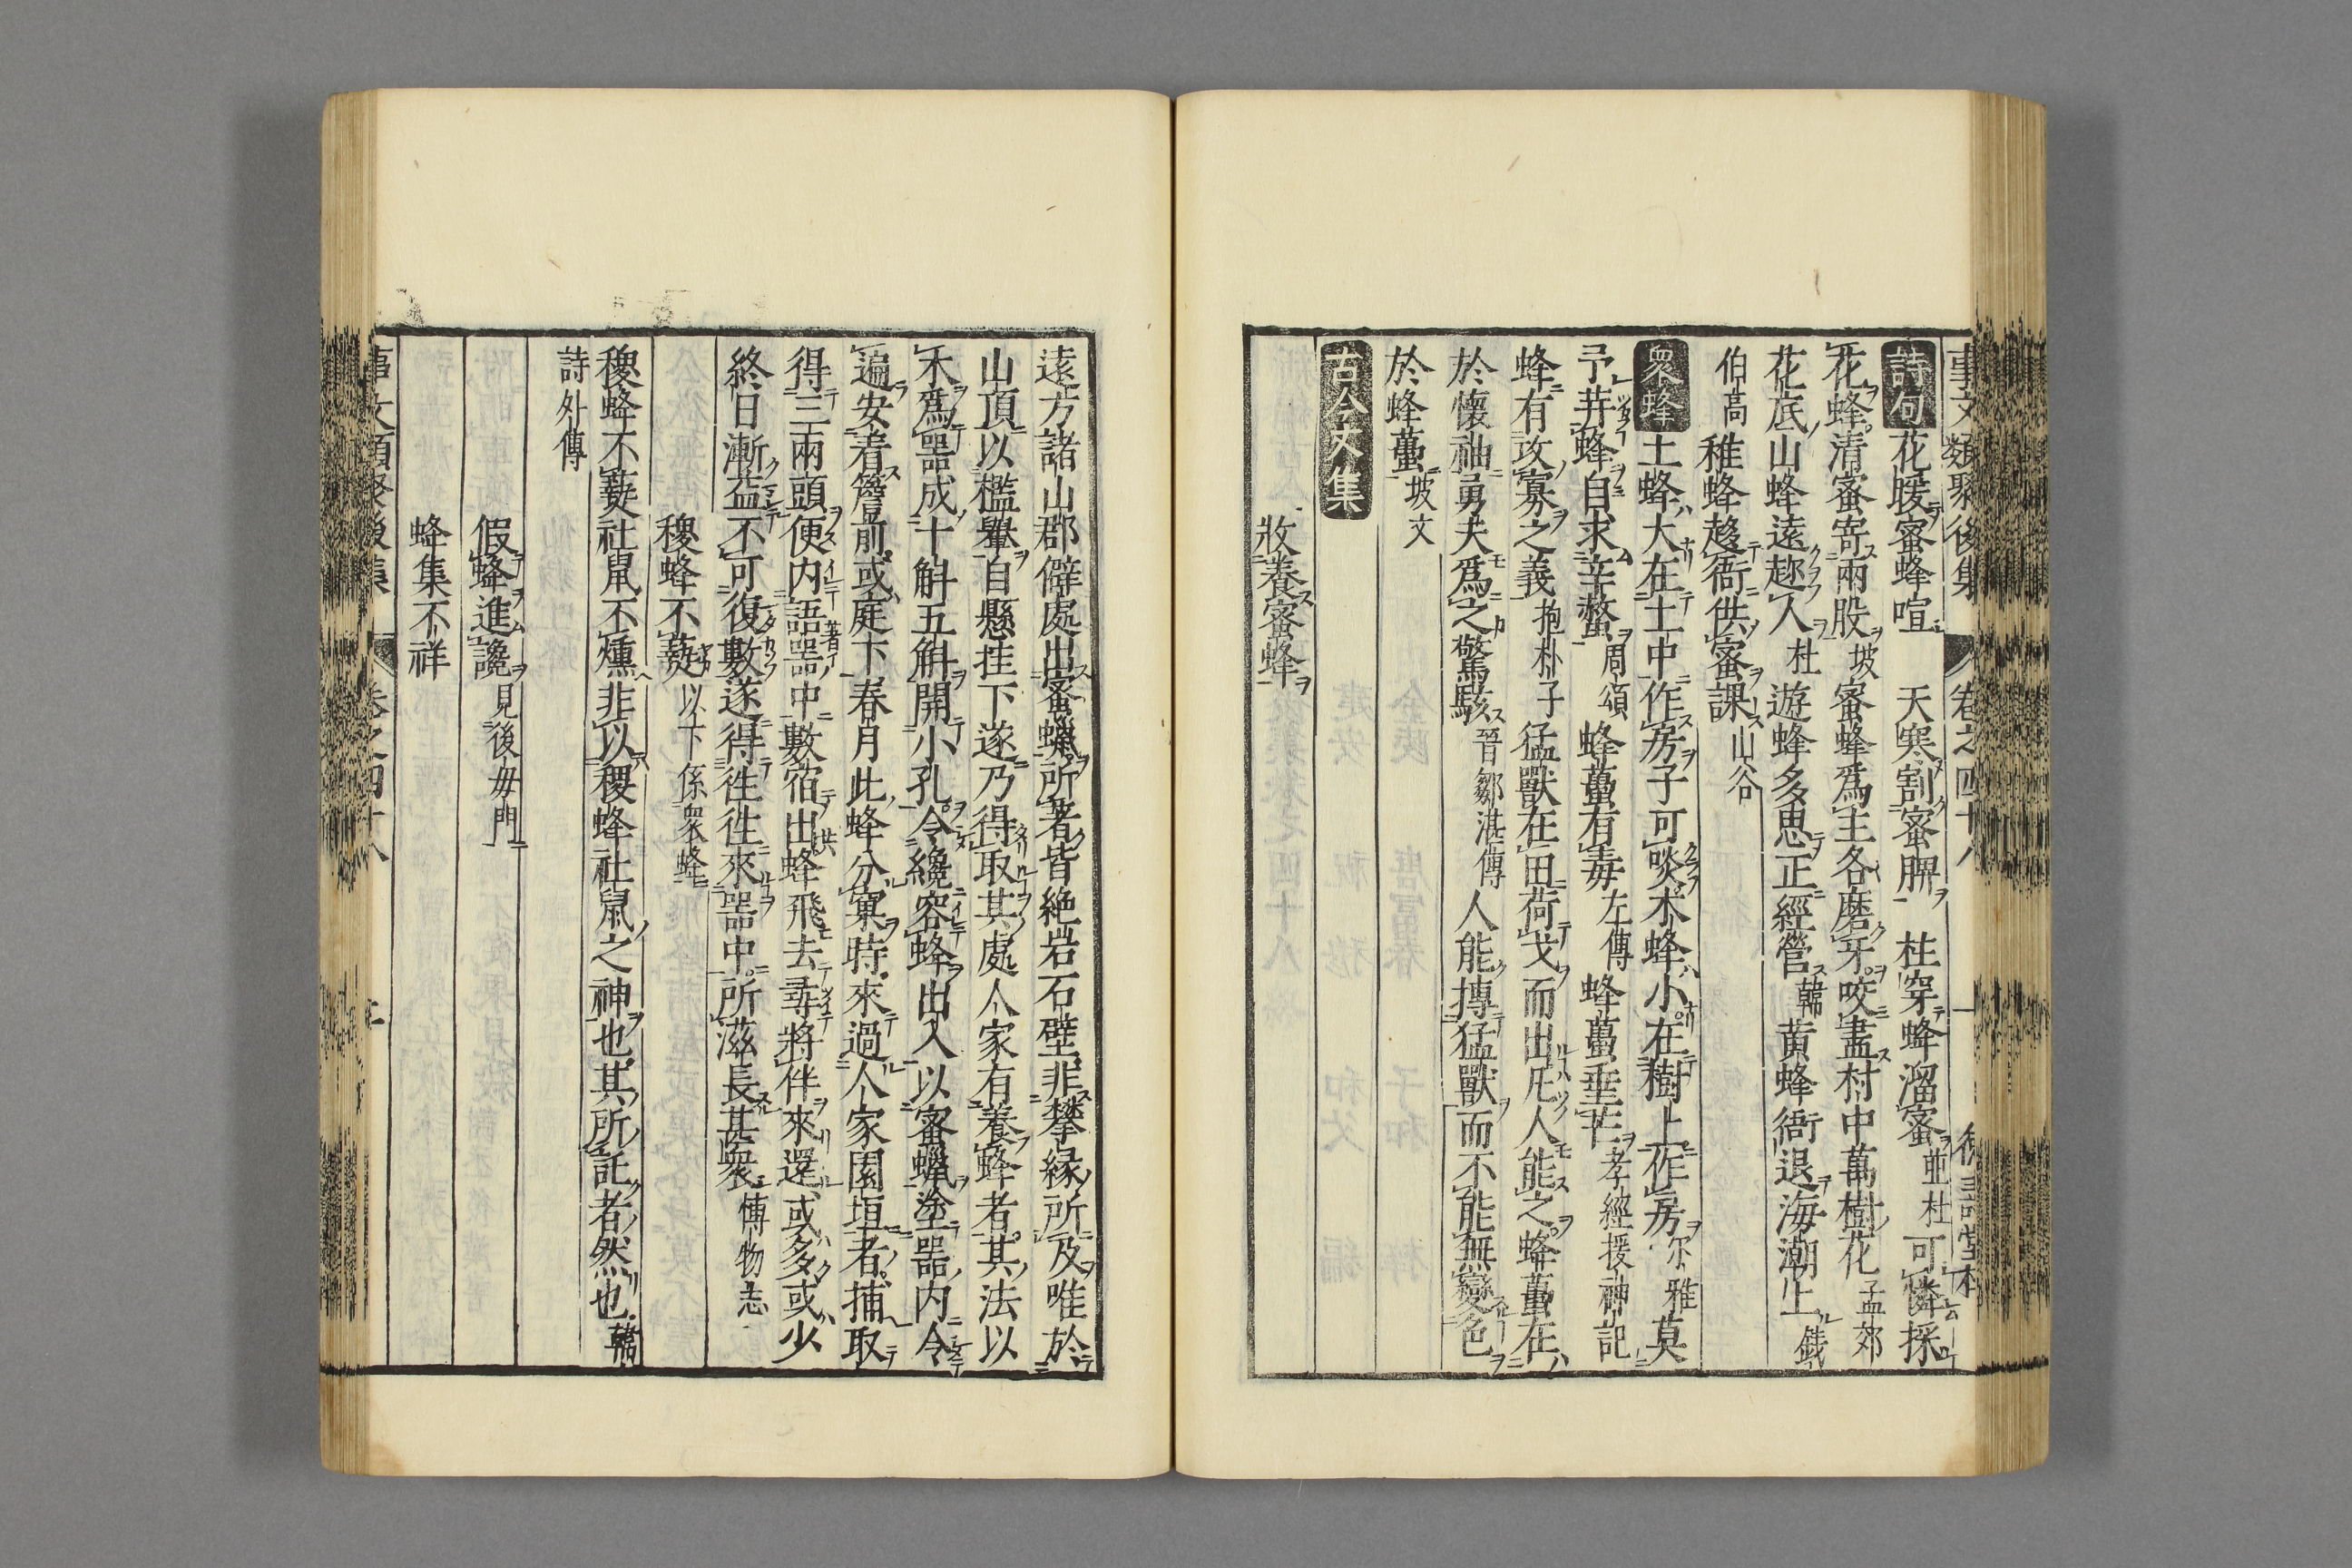 事文類聚後集 卷之四十八
詩句 花暖蜜蜂喧 天寒割蜜脾 柱穿蜂溜蜜 並杜 可憐採
花蜂清蜜寄兩股 坡 蜜蜂爲主各磨牙咬盡村中萬樹花 孟郊
花底山蜂遠趂人 杜 遊蜂多思正經營 韓 黃蜂衙退海潮上 錢
伯高 稚蜂趍衙供蜜課 山谷
衆蜂 土蜂大在土中作房子可啖木蜂小在樹上作房 尔雅 莫
予荓蜂自求辛螫 周頌 蜂蠆有毒 左傳 蜂蠆垂芒 孝經援神記
蜂有攻寡之義 抱朴子 猛獸在田荷戈而出凡人能之蜂蠆在
於懷袖勇夫爲之驚駭 晉鄒湛傳 人能摶猛獸而不能無變色
於蜂蠆 坡文
古今文集
牧養蜜蜂
遠方諸山郡僻處出蜜蠟所著皆絶岩石壁非攀縁所及唯於
山頂以檻轝自懸挂下遂乃得取其處人家有養蜂者其法以
木爲器成十斛五斛開小孔令纔容蜂出入以蜜蠟塗器内令
遍安着簷前或庭下春月此蜂分窠時來過人家園垣者捕取
得三兩頭便内語器中數宿出蜂飛去尋將伴來還或多或少
終日漸益不可復數遂得徃徃來器中所滋長甚衆 博物志
稷蜂不爇 以下係衆蜂
稷蜂不爇社鼠不燻非以稷蜂社鼠之神也其所託者然也 韓
詩外傳
假蜂進讒 見後母門
蜂集不祥
事文類聚後集 卷之四十八